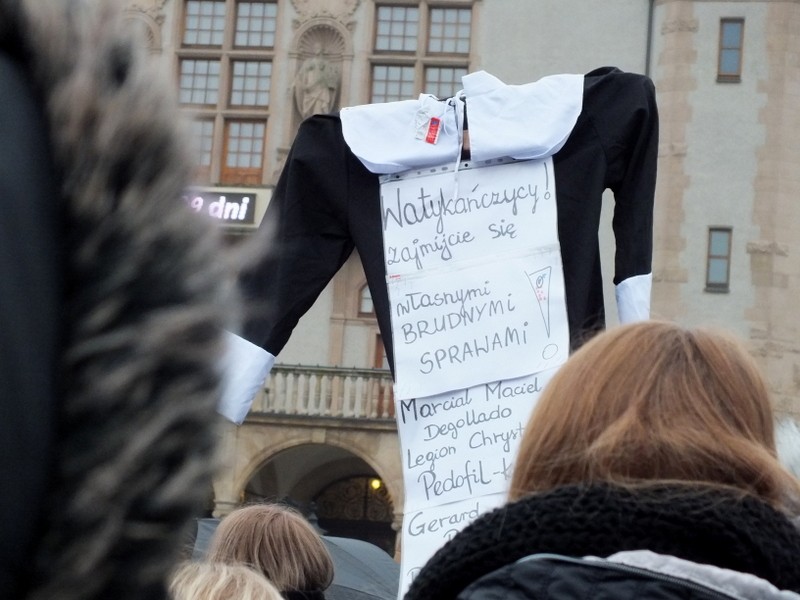 dni
Watykańczycy!
zajmijcie się
własnymi
BRUDNYMI
SPRAWAMI !
Marcial Maciel
Degollado
Legion Chryst
Pedofil-
Gerard